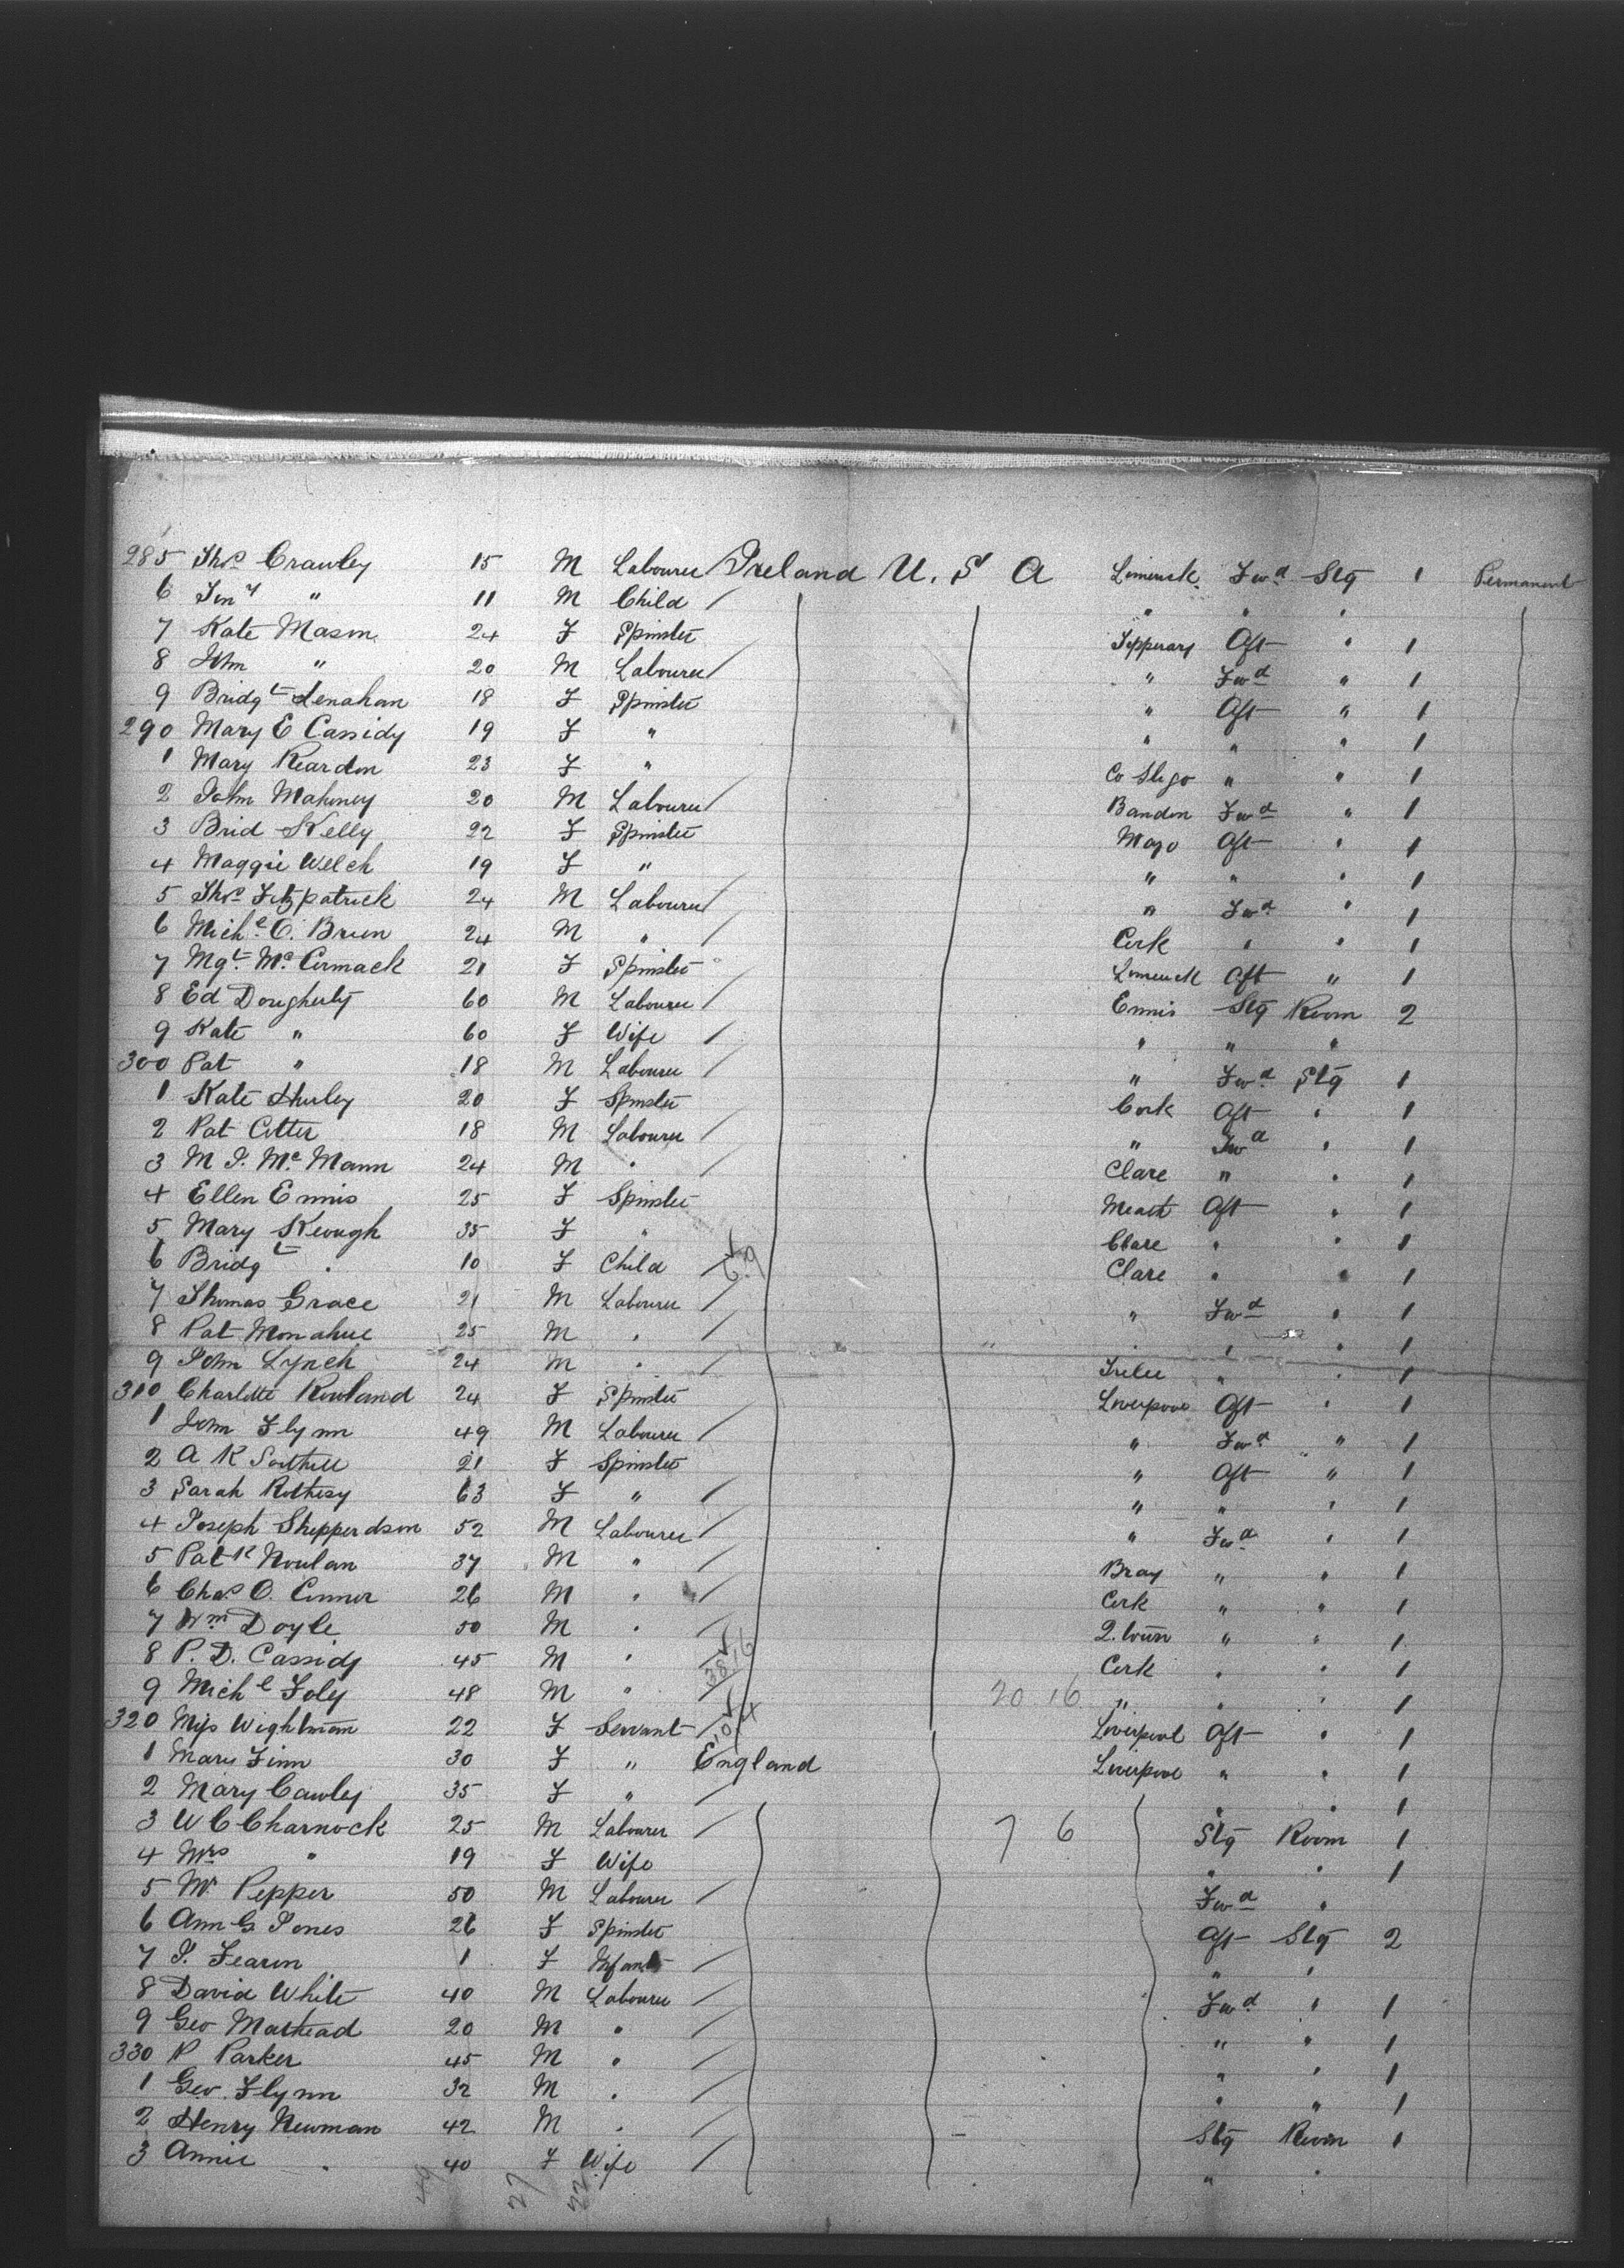 285 Thos Crawley 15 M Labourer / Ireland U. S A Limerick Fwd Stg 1 Permanent
6 " 11 M Child / " " "
7 Kate Mason 24 F Spinster Tipperary Aft " 1
8 John " 20 M Labourer / " Fwd " 1
9 Bridgt Lenahan 18 F Spinster " Aft " 1
290 Mary E Cassidy 19 F " " " " 1
1 Mary Reardon 23 F " Co Sligo " " 1
2 John Mahoney 20 M Labourer / Bandon Fwd " 1
3 Brid Kelly 22 F Spinster Mayo Aft " 1
4 Maggie Welch 19 F " " " " 1
5 Thos Fitzpatrick 24 M Labourer / " Fwd " 1
6 Michl O. Brien 24 M " / Cork " " 1
7 Mgt. Mc Cormack 21 F Spinster Limerick Aft " 1
8 Ed Dougherty 60 M Labourer / Ennis Stg Room 2
9 Kate " 60 F Wife / " " "
300 Pat " 18 M Labourer / " Fwd Stg 1
1 Kate Hurley 20 F Spinster Cork Aft " 1
2 Pat Cotter 18 M Labourer / " Fwd " 1
3 M J. Mc Mann 24 M " / Clare " " 1
4 Ellen Ennis 25 F Spinster Meath Aft " 1
5 Mary Keough 35 F " Clare " " 1
6 Bridgt " 10 F Child / Clare " " 1
7 Thomas Grace 21 M Labourer / " Fwd " 1
8 Pat Monahue 25 M " / " " " 1
9 John Lynch 24 M " / Tralee " " 1
310 Charlotte Rowland 24 F Spinster Liverpool Aft " 1
1 John Flynn 49 M Labourer / " Fwd " 1
2 A K 21 F Spinster " Aft " 1
3 Sarah Rothery 63 F " / " " " 1
4 Joseph Shepperdson 52 M Labourer / " Fwd " 1
5 Patk Noulan 37 M " / Bray " " 1
6 Chas O. Connor 26 M " / Cork " " 1
7 Wm Doyle 50 M " / Q. town " " 1
8 P. D. Cassidy 45 M " / 38.16 Cork " " 1
9 Michl Foly 48 M " / 20 16 " " " 1
320 Miss Wightman 22 F Servant / 10.4 Liverpool Aft " 1
1 Mary Finn 30 F " England Liverpool " " 1
2 Mary Cawley 35 F " / " " 1
3 W C Charnock 25 M Labourer / 7 6 Stg Room 1
4 Mrs " 19 F Wife " " 1
5 Mr Pepper 50 M Labourer / Fwd "
6 Ann G Jones 26 F Spinster Aft Stg 2
7 J. Fearon 1 F Infant / " "
8 David White 40 M Labourer / Fwd " 1
9 Geo Mathead 20 M " / " " 1
330 P Parker 45 M " / " " 1
1 Geo. Flynn 32 M " / " " 1
2 Henry Newman 42 M " / Stg Room 1
3 Annie " 40 F Wife / " "
49 27 22